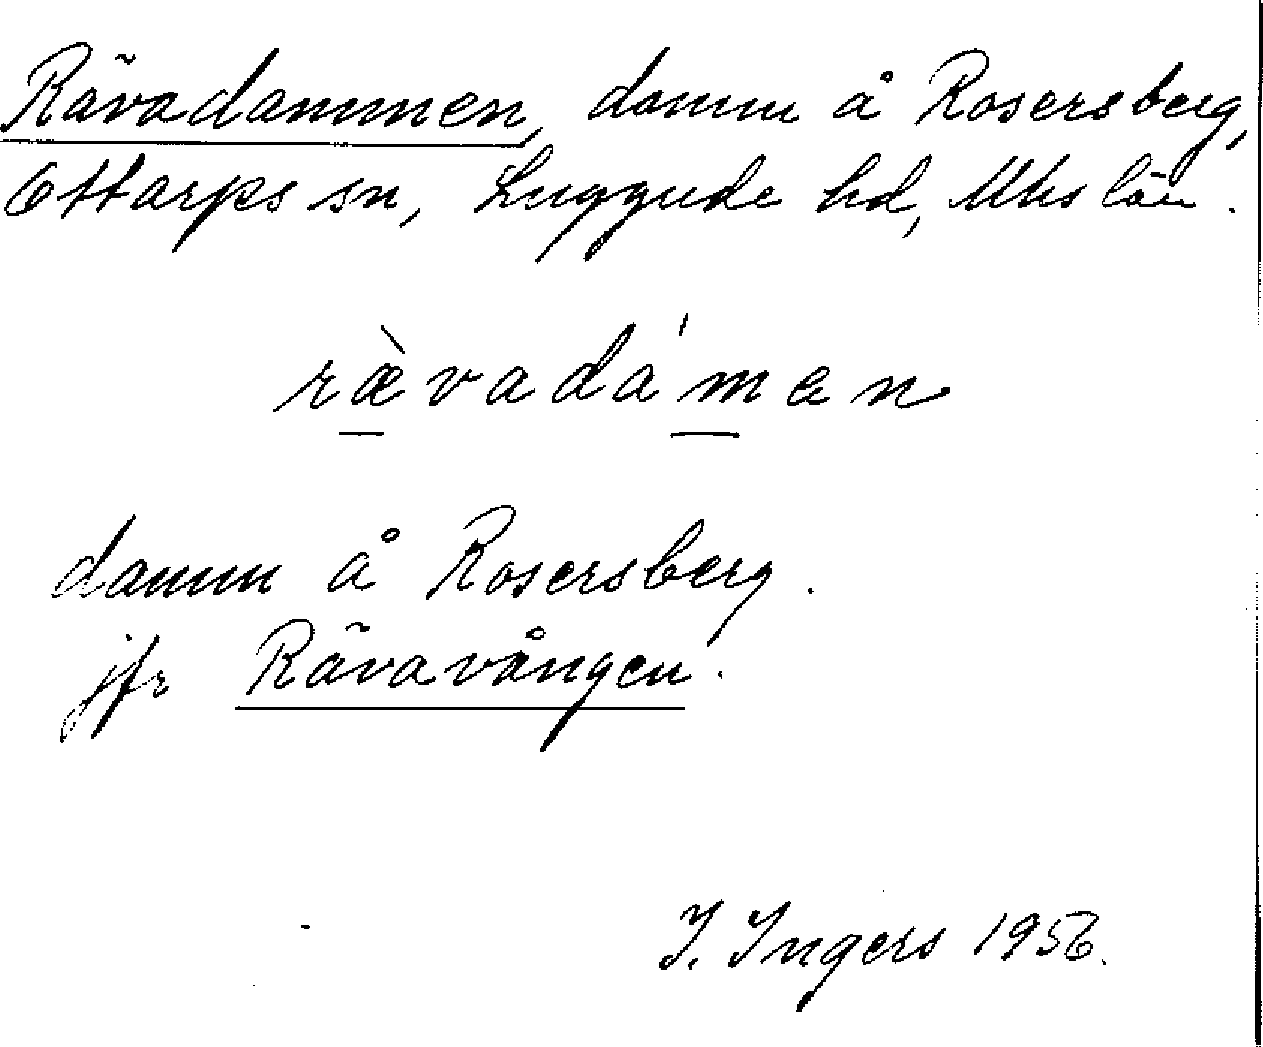 Rävadammen, damm å Rosersberg,
Ottarps sn, Luggude hd, Mhs län.
ræ̀vadám̍en
damm å Rosersberg.
jfr Rävavången.
I. Ingers 1956.